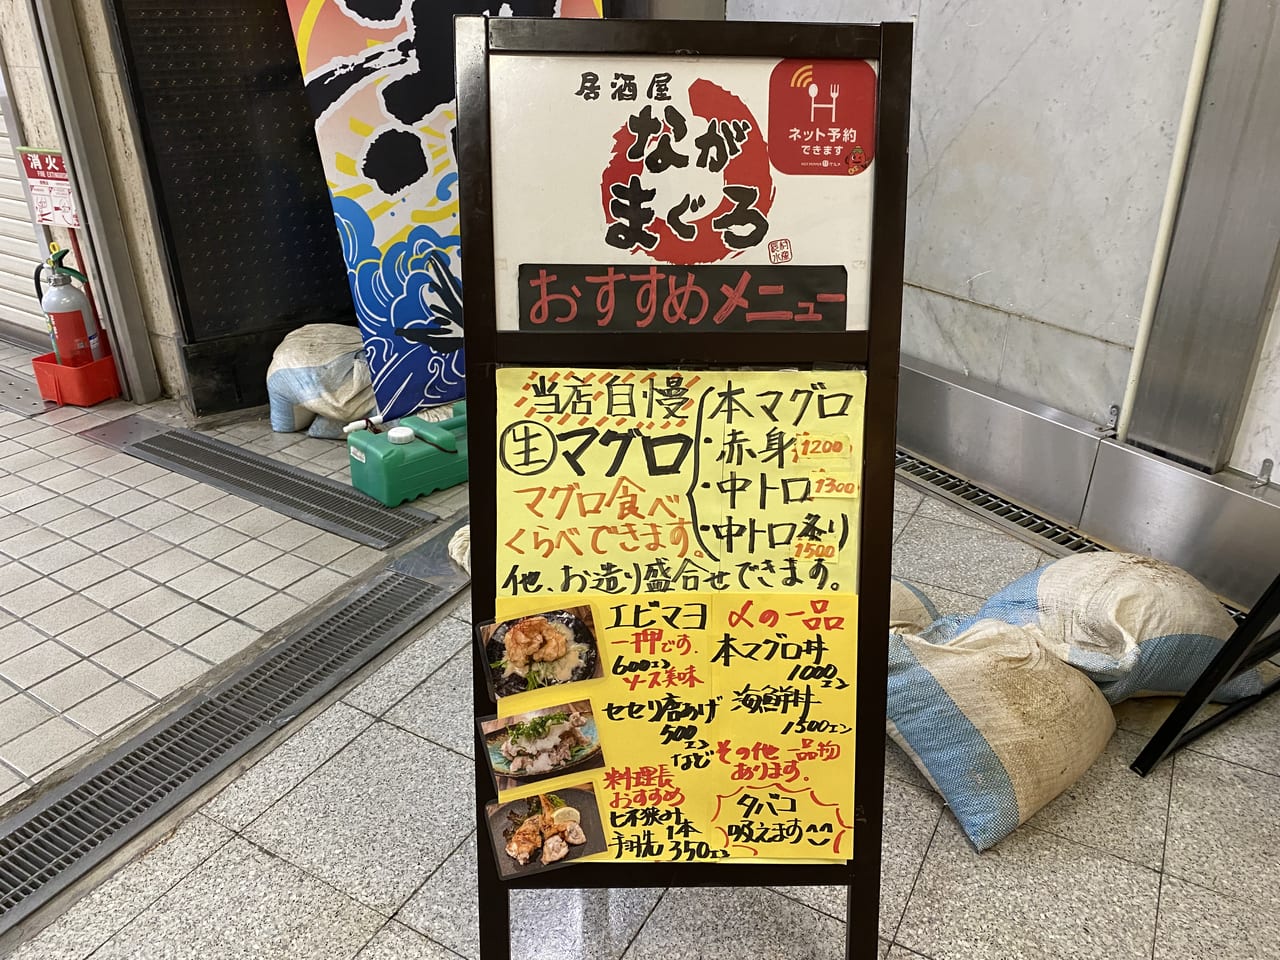 消火
FIRE EXTINGUISHER
居酒屋
なが
まぐろ
ネット予約
できます
HOT PEPPER グルメ
おすすめメニュー
当店自慢
生マグロ
マグロ食べ
くらべできます。
本マグロ
・赤身 1200
・中トロ 1300
・中トロ炙り
1500
他、お造り盛合せできます。
エビマヨ
一押です.
600エン
ソース美味
セセリ唐あげ
500
エン
など
料理長
おすすめ
手羽先 1本
350エン
〆の一品
本マグロ丼
1000エン
海鮮丼
1500エン
その他 一品物
あります.
タバコ
吸えます^^